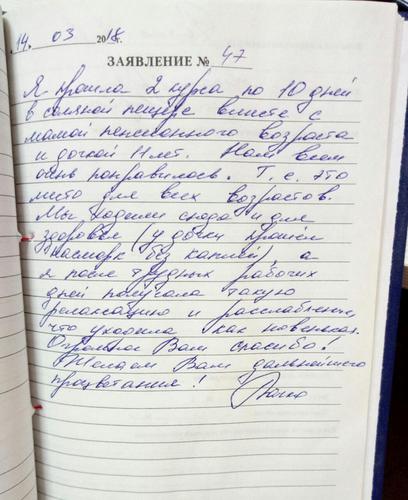 14. 03 2018г.
ЗАЯВЛЕНИЕ № 47
Я прошла 2 курса по 10 дней
в соляной пещере вместе с
мамой пенсионного возраста
и дочкой 11 лет. Нам всем
очень понравилось. Т. е. это
место для всех возрастов.
Мы ходили сюда и для
здоровья (у дочки прошёл
насморк без капель), а
я после трудных рабочих
дней получала такую
релаксацию и расслабление,
что уходила как новенькая.
Огромное Вам спасибо!
Желаем Вам дальнейшего
процветания!